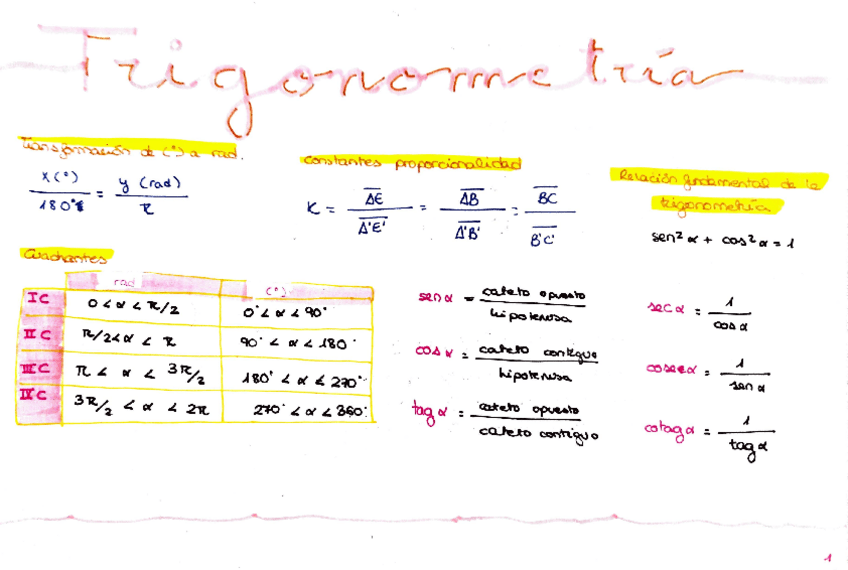 Trigonometría
Transformación de (°) a rad.
x (°) / 180° = y (rad) / π
Constantes proporcionalidad
K = AE / A'E' = AB / A'B' = BC / B'C'
Relación fundamental de la
trigonometría
sen² α + cos² α = 1
Cuadrantes
rad (°)
I C 0 < α < π/2 0° < α < 90°
II C π/2 < α < π 90° < α < 180°
III C π < α < 3π/2 180° < α < 270°
IV C 3π/2 < α < 2π 270° < α < 360°
sen α = cateto opuesto / hipotenusa
cos α = cateto contiguo / hipotenusa
tag α = cateto opuesto / cateto contiguo
sec α = 1 / cos α
cosec α = 1 / sen α
cotag α = 1 / tag α
1